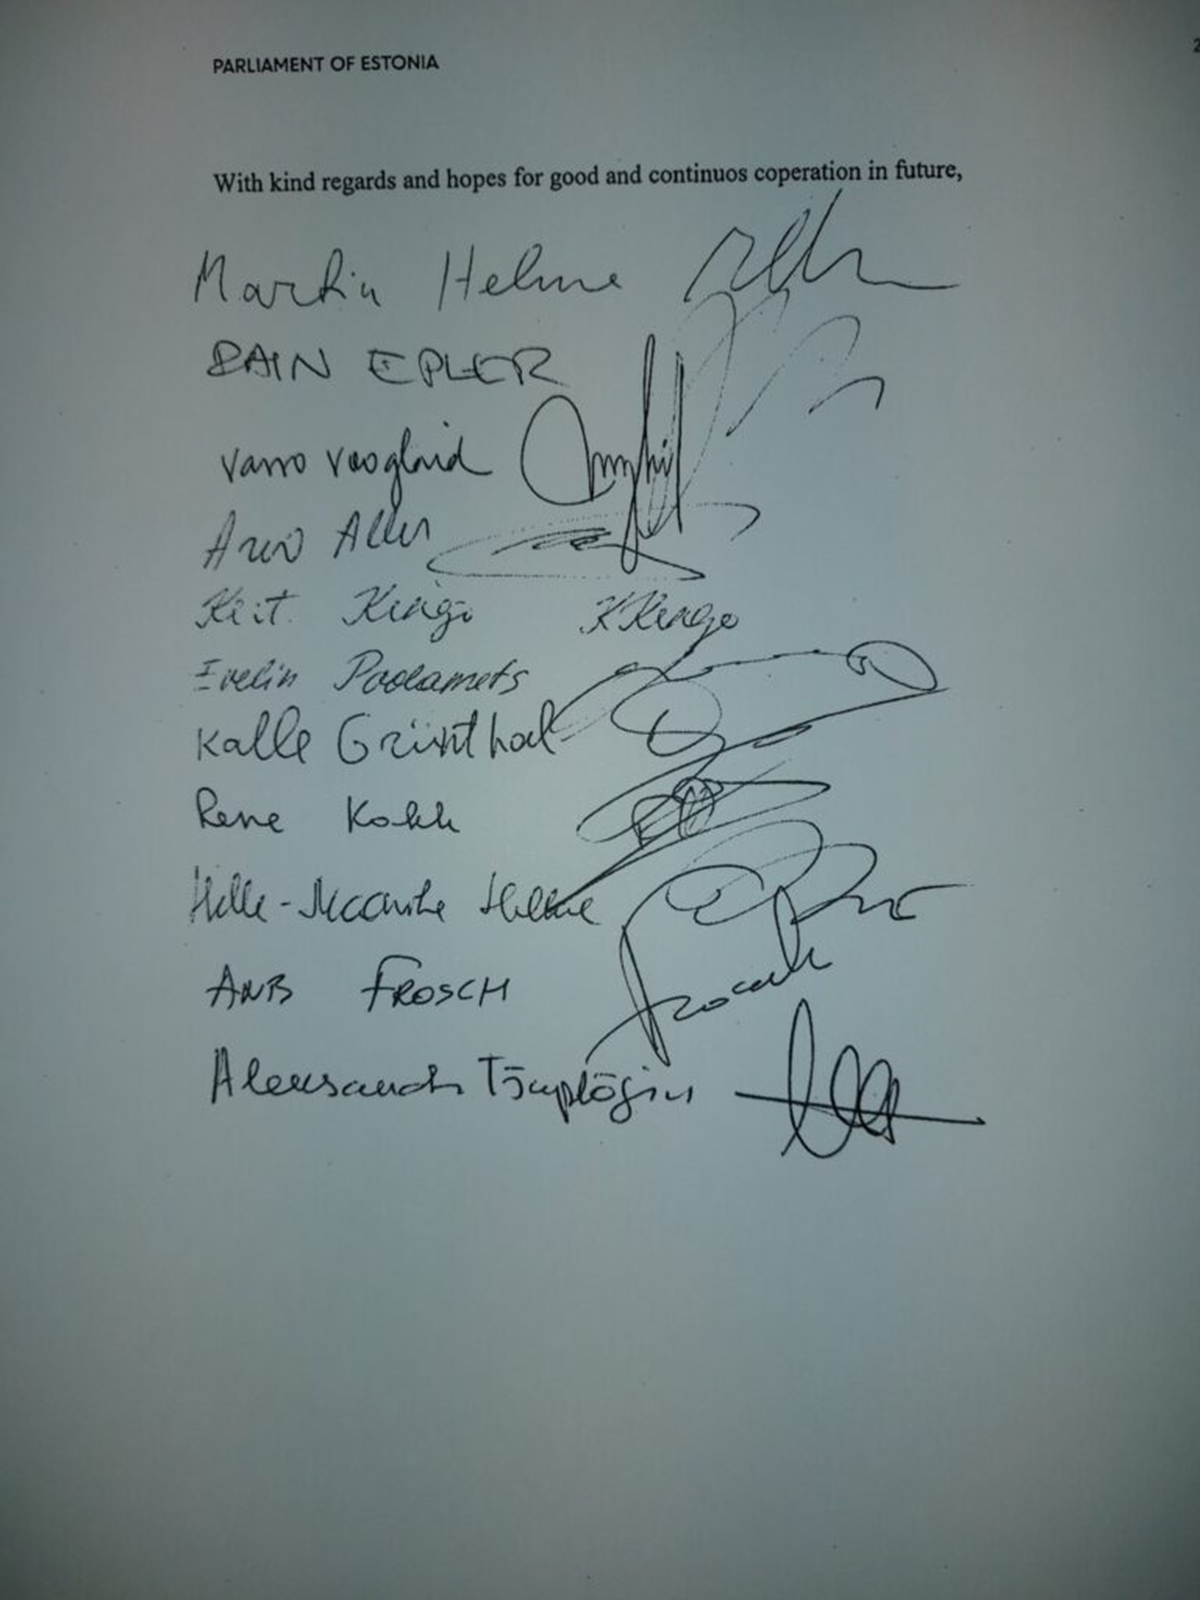 PARLIAMENT OF ESTONIA
2
With kind regards and hopes for good and continuos coperation in future,
Martin Helme
RAIN EPLER
Varro Vooglaid
Arvo Aller
Keit Kingo KKingo
Evelin Poolamets
Kalle Grünthal
Rene Kokk
Helle-Moonika Helme
ANTI FROSCH
Aleksandr Tšaplõgin